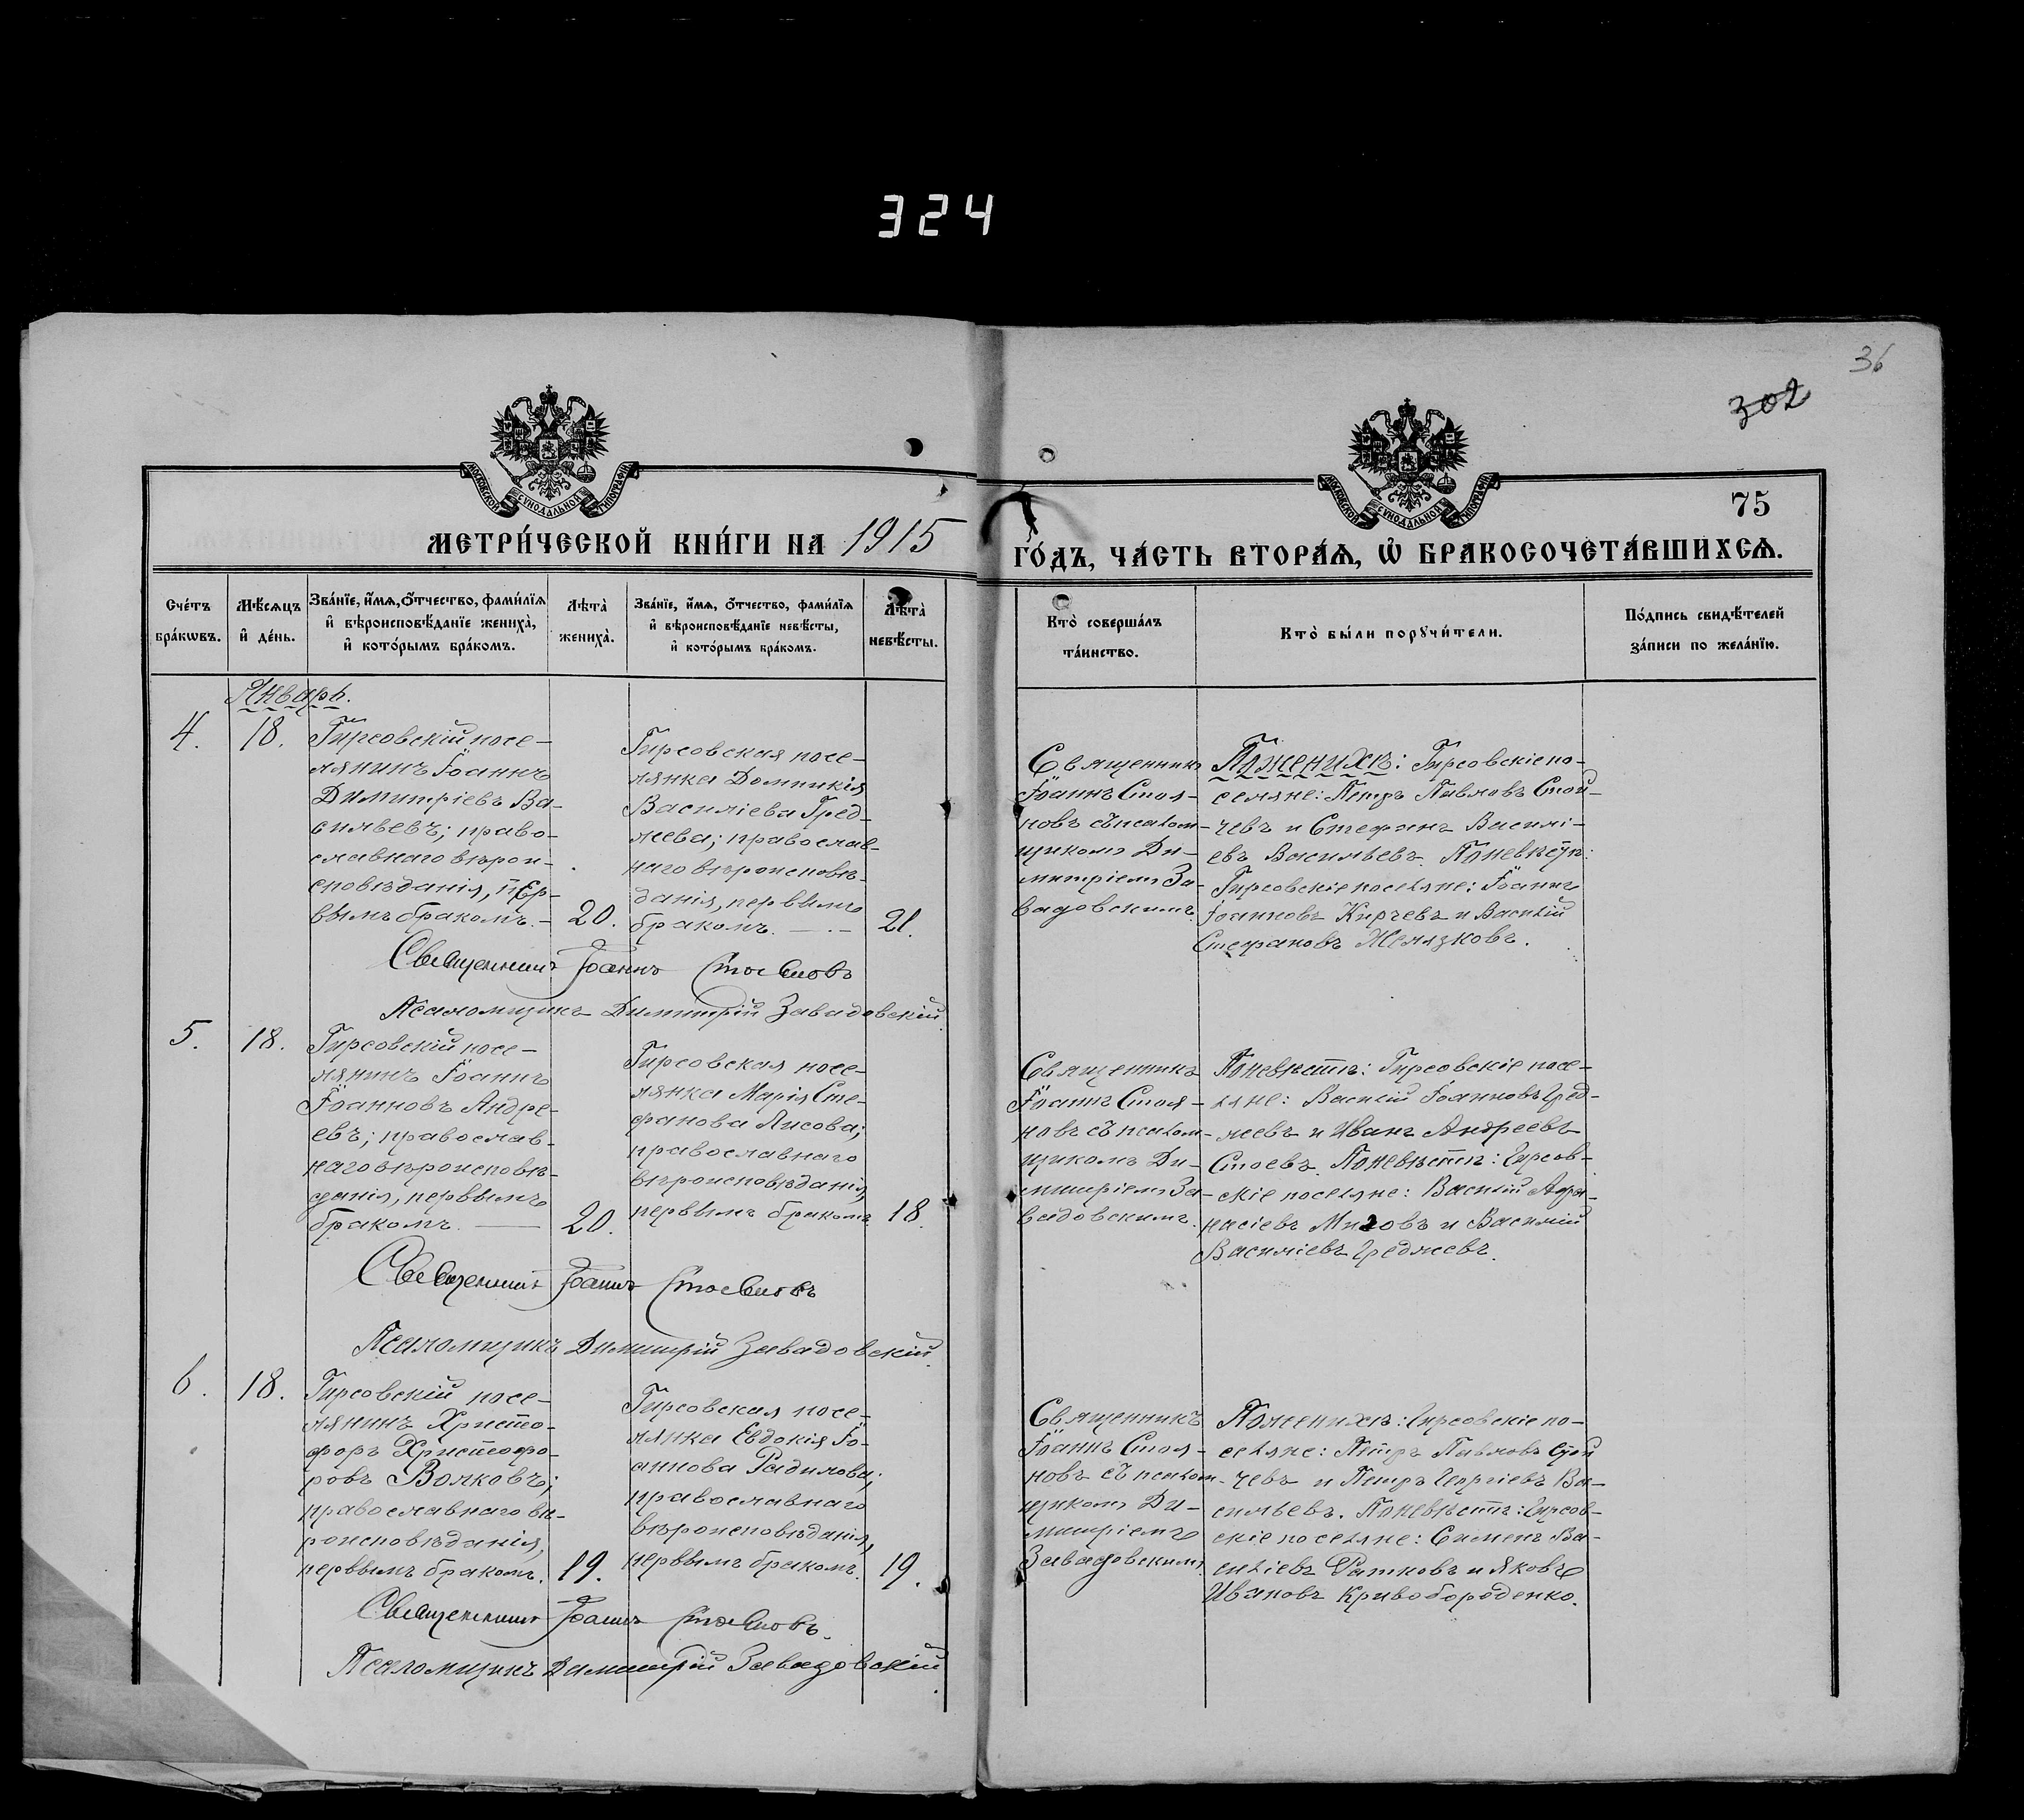 324
36
302
75
МОСКОВСКОЙ СѴНОДАЛЬНОЙ ТИПОГРАФІИ
МОСКОВСКОЙ СѴНОДАЛЬНОЙ ТИПОГРАФІИ
МЕТРИ́ЧЕСКОЙ КНИ́ГИ НА 1915
ГО́ДЪ, ЧА́СТЬ ВТОРА́Ѧ, Ѡ҆ БРАКОСОЧЕТА́ВШИХСѦ.
Сче́тъ бра́кѡвъ.
Мѣ́сѧцъ и҆ де́нь.
Зва́нїе, и҆́мѧ, ѻ҆́тчество, фами́лїѧ
и҆ вѣроисповѣ́данїе жениха̀,
и҆ кото́рымъ бра́комъ.
Лѣта̀ жениха̀.
Зва́нїе, и҆́мѧ, ѻ҆́тчество, фами́лїѧ
и҆ вѣроисповѣ́данїе невѣ́сты,
и҆ кото́рымъ бра́комъ.
Лѣта̀ невѣ́сты.
Кто̀ соверша́лъ
та́инство.
Кто̀ бы́ли порꙋчи́тели.
По́дпись свидѣ́телей
за́писи по жела́нїю.
Январь.
4.
18.
Гирсовскій посе-
лянинъ Іоаннъ
Димитріевъ Ва-
сильевъ; право-
славнаго вѣрои-
сповѣданія, пер-
вымъ бракомъ. –
20.
Гирсовская посе-
лянка Домникія
Василіева Гред-
жева; православ-
наго вѣроисповѣ-
данія, первымъ
бракомъ. — . –
21.
Священникъ
Іоаннъ Стоя-
новъ съ псалом-
щикомъ Ди-
митріемъ За-
вадовскимъ.
По женихѣ: Гирсовскіе по-
селяне: Петръ Павловъ Стой-
чевъ и Стефанъ Василі-
евъ Васильевъ. По невѣстѣ:
Гирсовскіе поселяне: Іоаннъ
Іоанновъ Кирчевъ и Василій
Стефановъ Желязковъ.
Священникъ Іоаннъ Стояновъ
Псаломщикъ Димитрій Завадовскій.
5.
18.
Гирсовскій посе-
лянинъ Іоаннъ
Іоанновъ Андре-
евъ; православ-
наго вѣроисповѣ-
данія, первымъ
бракомъ. —
20.
Гирсовская посе-
лянка Марія Сте-
фанова Лисова;
православнаго
вѣроисповѣданія,
первымъ бракомъ
18.
Священникъ
Іоаннъ Стоя-
новъ съ псалом-
щикомъ Ди-
митріемъ За-
вадовскимъ.
По невѣстѣ: Гирсовскіе посе-
ляне: Василій Іоанновъ Гред-
жевъ и Иванъ Андреевъ
Стоевъ. По невѣстѣ: Гирсов-
скіе поселяне: Василій Афа-
насіевъ и Василій
Василіевъ Греджевъ.
Священникъ Іоаннъ Стояновъ
Псаломщикъ Димитрій Завадовскій.
6.
18.
Гирсовскій посе-
лянинъ Христо-
форъ Христофо-
ровъ Волковъ;
православнаго вѣ-
роисповѣданія,
первымъ бракомъ.
19.
Гирсовская посе-
лянка Евдокія Іо-
аннова Радилова;
православнаго
вѣроисповѣданія,
первымъ бракомъ.
19.
Священникъ
Іоаннъ Стоя-
новъ съ псалом-
щикомъ Ди-
митріемъ
Завадовскимъ.
По женихѣ: Гирсовскіе по-
селяне: Петръ Павловъ Стой-
чевъ и Петръ Георгіевъ Ва-
сильевъ. По невѣстѣ: Гирсов-
скіе поселяне: Симеонъ Ва-
силіевъ Ратковъ и Яковъ
Ивановъ Кривобороденко.
Священникъ Іоаннъ Стояновъ.
Псаломщикъ Димитрій Завадовскій.